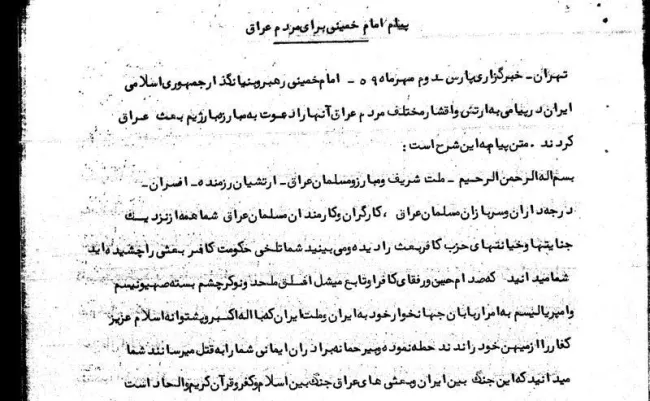 پیام امام خمینی برای مردم عراق
تهران - خبرگزاری پارس - دوم مهرماه ۵۹ - امام خمینی رهبر و بنیانگذار جمهوری اسلامی
ایران در پیامی به ارتش و اقشار مختلف مردم عراق آنها را دعوت به مبارزه با رژیم بعث عراق
کردند . متن پیام به این شرح است :
بسم اله الرحمن الرحیم - ملت شریف و مبارز و مسلمان عراق - ارتشیان رزمنده - افسران -
درجه داران و سربازان مسلمان عراق ، کارگران و کارمندان مسلمان عراق شما همه از نزدیک
جنایتها و خیانتهای حزب کافر بعث را دیده و می بینید شما تلخی حکومت کافر بعثی را چشیده اید
شما میدانید که صدام حسین و رفقای کافر او تابع میشل افلق ملحد و نوکر چشم بسته صهیونیسم
و امپریالیسم به امر اربابان جهانخوار خود به ایران و ملت ایران که با اله اکبر و پشتوانه اسلام عزیز
کفار را از میهن خود راندند حمله نموده و بیرحمانه برادران ایمانی شما را به قتل میرسانند شما
میدانید که این جنگ بین ایران و بعثی های عراق جنگ بین اسلام و کفر و قرآن کریم و الحاد است